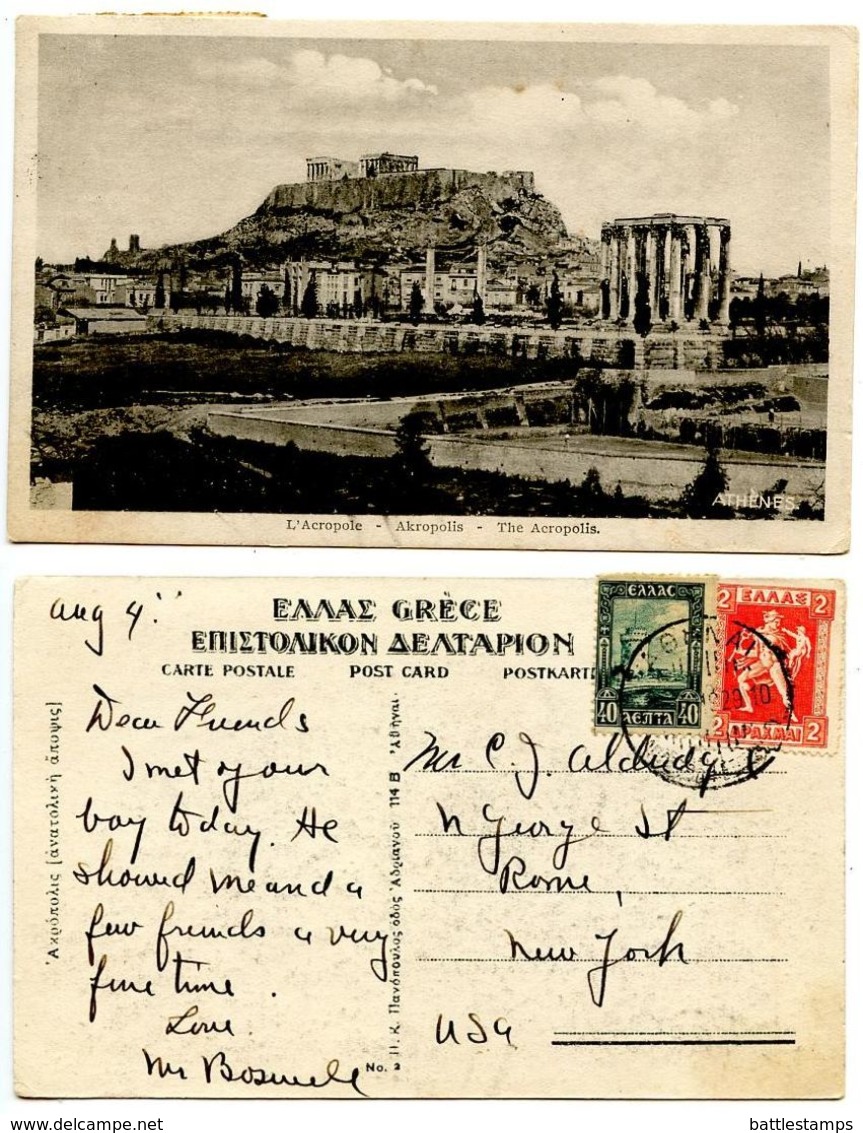 ATHÈNES.
L'Acropole - Akropolis - The Acropolis.
Aug 4
ΕΛΛΑΣ GRÈCE
ΕΠΙΣΤΟΛΙΚΟΝ ΔΕΛΤΑΡΙΟΝ
CARTE POSTALE POST CARD POSTKARTE
ΕΛΛΑΣ
40 ΛΕΠΤΑ 40
2 ΕΛΛΑΣ 2
2 ΔΡΑΧΜΑΙ 2
Ἀκρόπολις [ἀνατολικὴ ἄποψις]
Dear Friends
I met your
boy today. He
showed me and a
few friends a very
fine time.
Love.
Mr Boswell
Π. Κ. Πανόπουλος ὁδὸς Ἀδριανοῦ 114 Β Ἀθῆναι
No. 2
Mr C. J.
N George St
Rome,
New York
USA
battlestamps